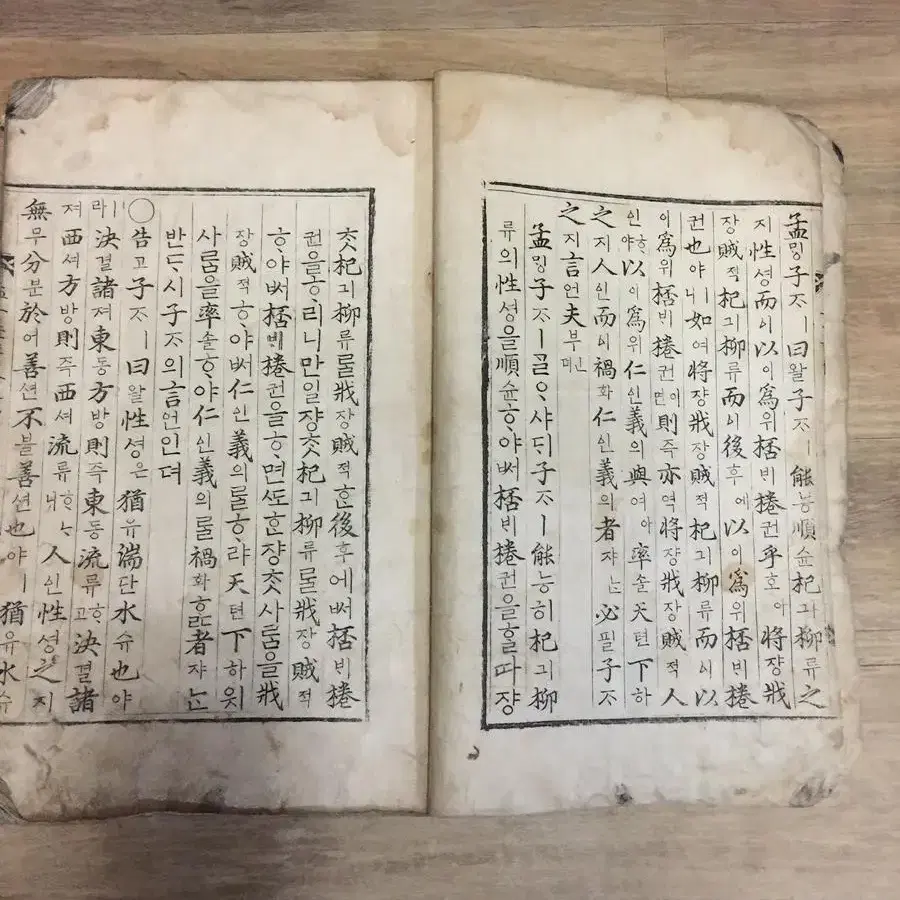 孟밍子ᄌᆞㅣ曰왈子ᄌᆞㅣ能능順슌杞긔柳류之
지性셩而이以이爲위桮ᄇᆡ棬권乎호아將쟝戕
장賊적杞긔柳류而이後후에以이爲위桮ᄇᆡ棬
권也야ㅣ니如여將쟝戕장賊적杞긔柳류而이以
이爲위桮ᄇᆡ棬권이면則즉亦역將쟝戕장賊적人
인ᄒᆞ야以이爲위仁인義의與여아率솔天텬下하
之지人인而이禍화仁인義의者쟈ᄂᆞᆫ必필子ᄌᆞ
之지言언夫부ㅣㄴ뎌
孟밍子ᄌᆞㅣᄀᆞᆯᄋᆞ샤ᄃᆡ子ᄌᆞㅣ能능히杞긔柳
류의性셩을順슌ᄒᆞ야ᄡᅥ桮ᄇᆡ棬권을ᄒᆞᆯ따쟝
ᄎᆞᆺ杞긔柳류ᄅᆞᆯ戕장賊적ᄒᆞᆫ後후에ᄡᅥ桮ᄇᆡ棬
권을ᄒᆞ리니만일쟝ᄎᆞᆺ杞긔柳류ᄅᆞᆯ戕장賊적
ᄒᆞ야ᄡᅥ桮ᄇᆡ棬권을ᄒᆞ면ᄯᅩᄒᆞᆫ쟝ᄎᆞᆺ사ᄅᆞᆷ을戕
장賊적ᄒᆞ야ᄡᅥ仁인義의ᄅᆞᆯᄒᆞ랴天텬下하읫
사ᄅᆞᆷ을率솔ᄒᆞ야仁인義의ᄅᆞᆯ禍화ᄒᆞᆯ者쟈ᄂᆞᆫ
반ᄃᆞ시子ᄌᆞ의言언인뎌
○告고子ᄌᆞㅣ曰왈性셩은猶유湍단水슈也야
ㅣ라決결諸져東동方방則즉東동流류ᄒᆞ고決결諸
져西셔方방則즉西셔流류ᄒᆞᄂᆞ니人인性셩之지
無무分분於어善션不블善션也야ㅣ猶유水슈